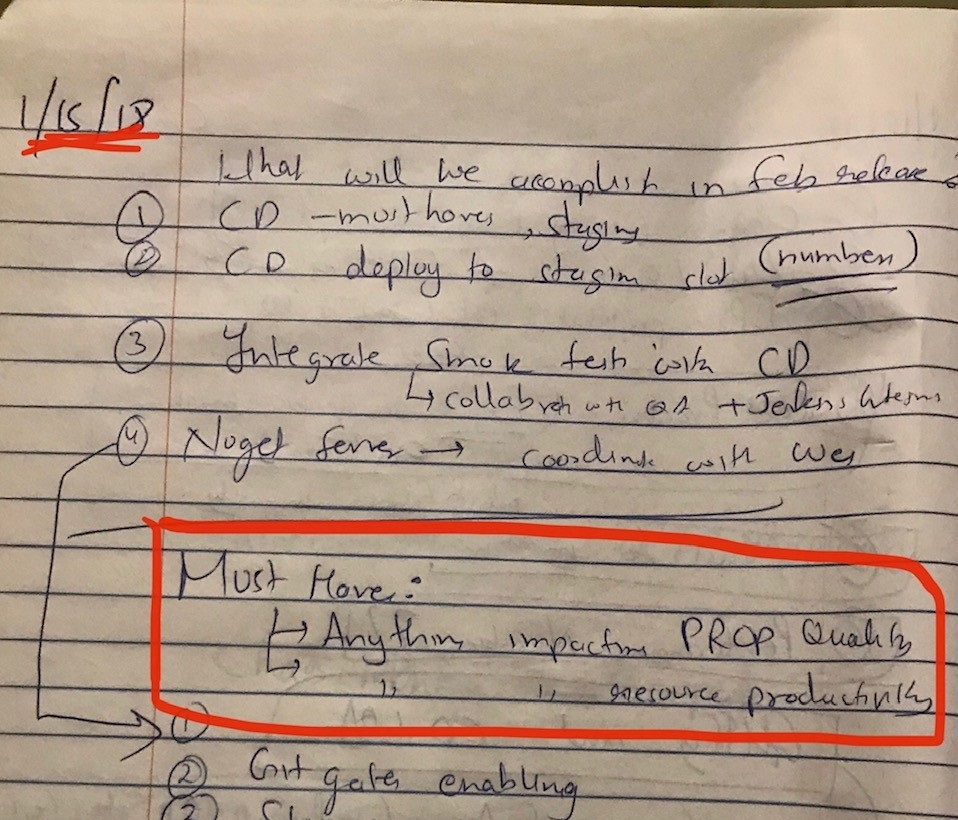 1/15/18
What will we acomplish in feb release?
① CD - must haves, staging
② CD deploy to stagim slot (number)
③ Integrate Smok tests with CD
↳ collabrah with QA + Jenkins
④ Nuget Server → coordinate with Wes
Must Have:
↳ Anything impacting PROP Quality
↳ " " resource productivity
①
② gates enabling
③